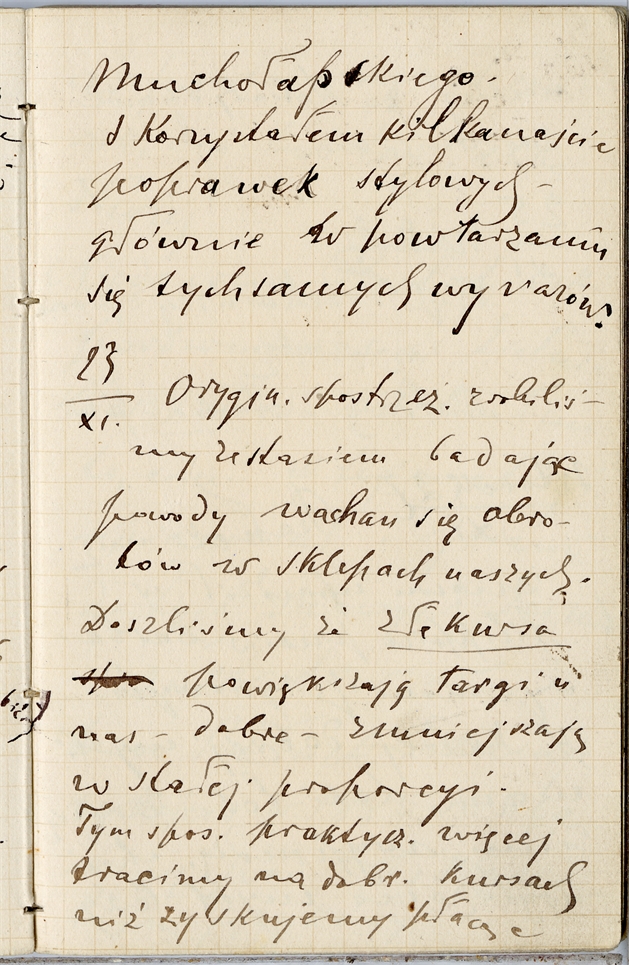 Muchołapskiego.
Skorzystałem kilkanaście
poprawek stylowych –
głównie w powtarzaniu
się tychsamych wyrazów.
23
XI. Orygin. spostrzeż. zrobiliś-
my ze Stasiem badając
powody wachań się obro-
tów w sklepach naszych.
Doszliśmy że złe Kursa
powiększają targi u
nas – dobre – zmniejszają
w stałej proporcyi.
Tym spos. praktycz. więcej
tracimy na dobr. kursach
niż zyskujemy płacąc